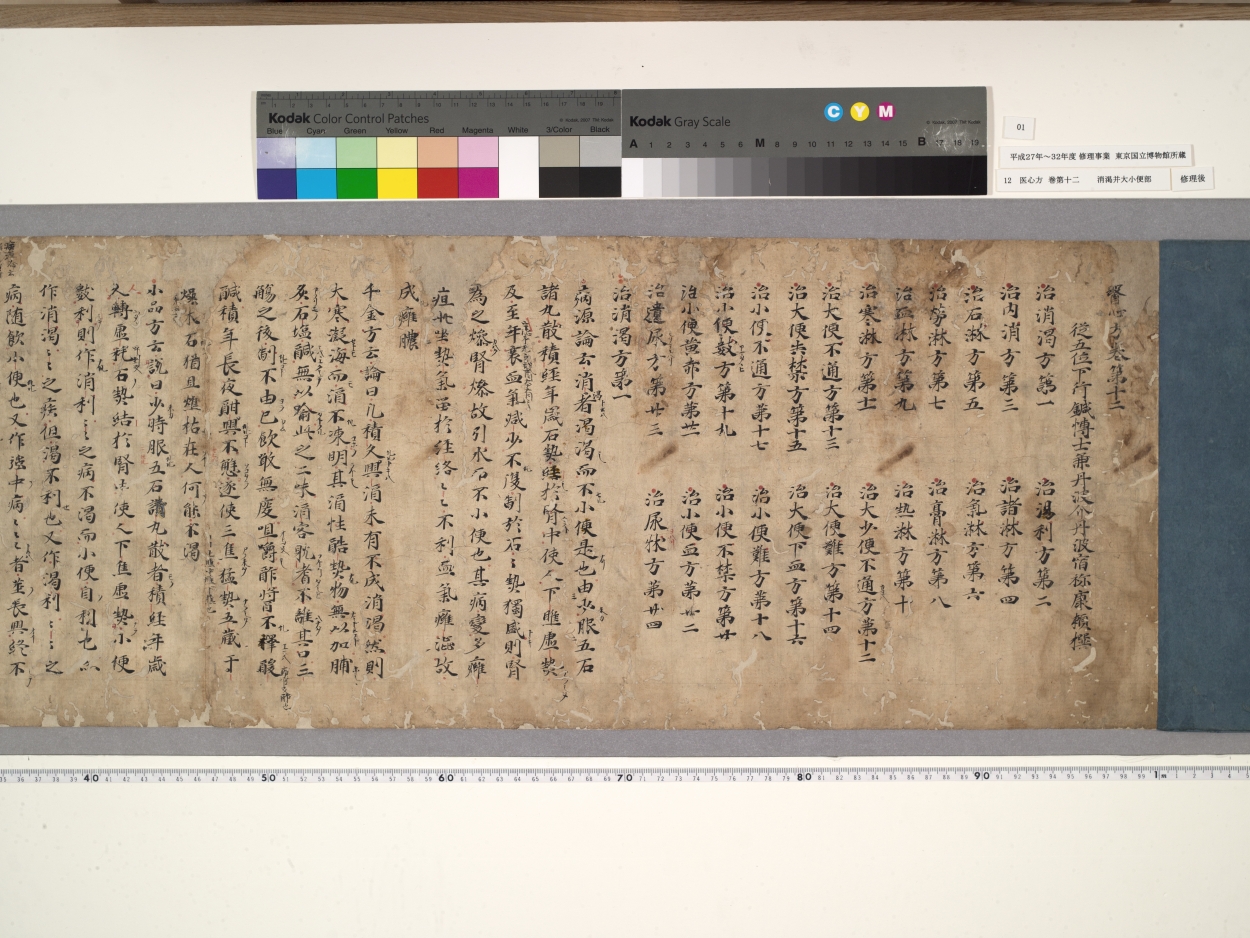 Kodak Color Control Patches
Blue Cyan Green Yellow Red Magenta White 3/Color Black
Kodak Gray Scale
C Y M
A 1 2 3 4 5 6 M 8 9 10 11 12 13 14 15 B 17 18 19
01
平成27年～32年度 修理事業 東京国立博物館所蔵
12 医心方 巻第十二 消渇并大小便部
修理後
醫心方卷第十二
從五位下行鍼博士兼丹波介丹波宿祢康頼撰
治消渴方第一 治渴利方第二
治内消方第三 治諸淋方第四
治石淋方第五 治氣淋方第六
治勞淋方第七 治膏淋方第八
治血淋方第九 治熱淋方第十
治寒淋方第十一 治大小便不通方第十二
治大便不通方第十三 治大便難方第十四
治大便失禁方第十五 治大便下血方第十六
治小便不通方第十七 治小便難方第十八
治小便數方第十九 治小便不禁方第廿
治小便黄赤方第廿一 治小便血方第廿二
治遺尿方第廿三 治尿床方第廿四
治消渴方第一
病源論云消者渴渴而不小便是也由少服五石
諸丸散積經年歲石勢結於腎中使人下膲虛熱
及至年衰血氣減少不復制於石石勢獨盛則腎
為之燥腎燥故引水而不小便也其病變多癰
疽此坐熱氣留於經絡絡不利血氣癰澁故
成癰膿
千金方云論曰凡積久飲酒未有不成消渴然則
大寒凝海而酒不凍明其酒性酷熱物無以加脯
炙石塩鹹無以喻此之二味酒客躭者不離其口三
觴之後制不由己飲噉無度咀嚼酢醬不擇酸
鹹積年長夜酣興不懈遂使三焦猛熱五藏干
燥木石猶且燋枯在人何能不渴
小品方云說曰少時服五石諸丸散者積經年歲
人轉虛耗石勢結於腎中使人下焦虛熱小便
數利則作消利消利之病不渴而小便自利也亦
作消渴消渴之疾但渴不利也又作渴利渴利之
病随飲小便也又作强中病强中病者莖長興終不
40 50 60 70 80 90 1m